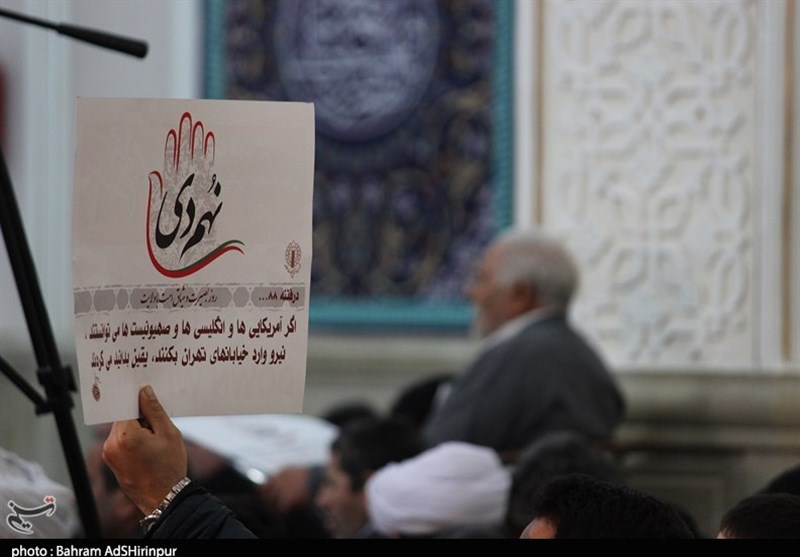 نهم دی
روز بصیرت و میثاق امت با ولایت
در فتنه ۸۸...
اگر آمریکایی ها و انگلیسی ها و صهیونیست ها می توانستند ،
نیرو وارد خیابانهای تهران بکنند، یقین بدانید می کردند
تسنیم
photo : Bahram AdSHirinpur